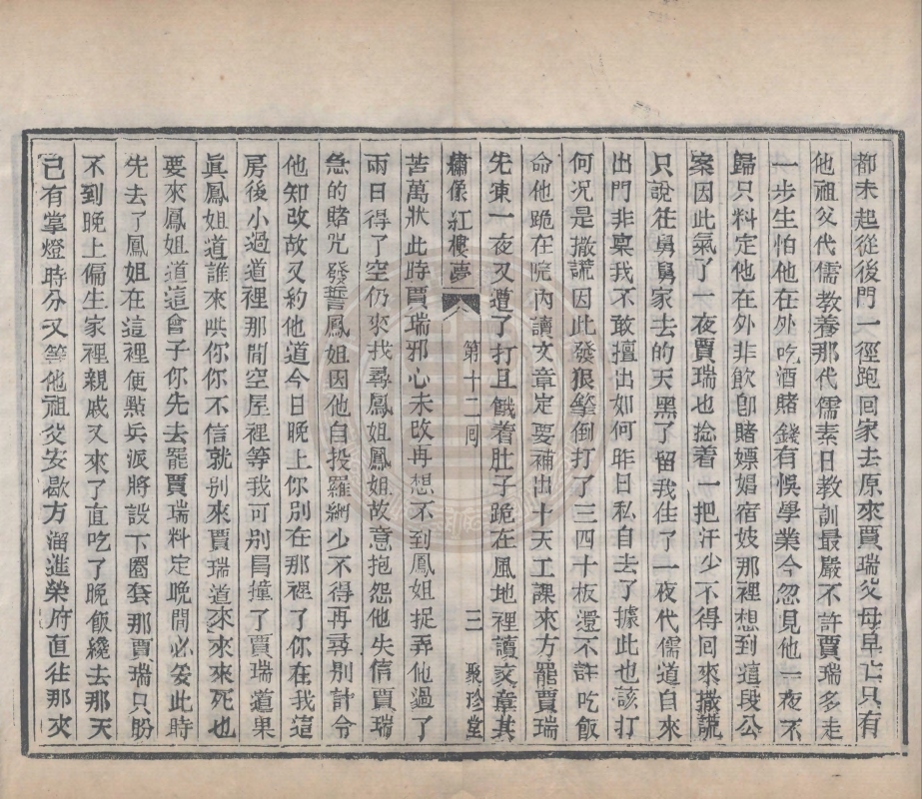 都未起從後門一徑跑回家去原來賈瑞父母早亡只有
他祖父代儒教養那代儒素日教訓最嚴不許賈瑞多走
一步生怕他在外吃酒賭錢有悞學業今忽見他一夜不
歸只料定他在外非飲卽賭嫖娼宿妓那裡想到這段公
案因此氣了一夜賈瑞也捻着一把汗少不得回來撒謊
只說往舅舅家去的天黑了留我住了一夜代儒道自來
出門非稟我不敢擅出如何昨日私自去了據此也該打
何况是撒謊因此發狠拏倒打了三四十板還不許吃飯
命他跪在院內讀文章定要補出十天工課來方罷賈瑞
先凍一夜又遭了打且餓着肚子跪在風地裡讀文章其
繡像紅樓夢 第十二囘 三 聚珍堂
苦萬狀此時賈瑞邪心未改再想不到鳳姐捉弄他過了
兩日得了空仍來找尋鳳姐鳳姐故意抱怨他失信賈瑞
急的賭咒發誓鳳姐因他自投羅網少不得再尋別計令
他知改故又約他道今日晚上你別在那裡了你在我這
房後小過道裡那間空屋裡等我可別冒撞了賈瑞道果
眞鳳姐道誰來哄你你不信就别來賈瑞道來來來死也
要來鳳姐道這會子你先去罷賈瑞料定晚間必妥此時
先去了鳳姐在這裡便點兵派將設下圈套那賈瑞只盼
不到晚上偏生家裡親戚又來了直吃了晚飯纔去那天
已有掌燈時分又等他祖父安歇方溜進榮府直往那夾